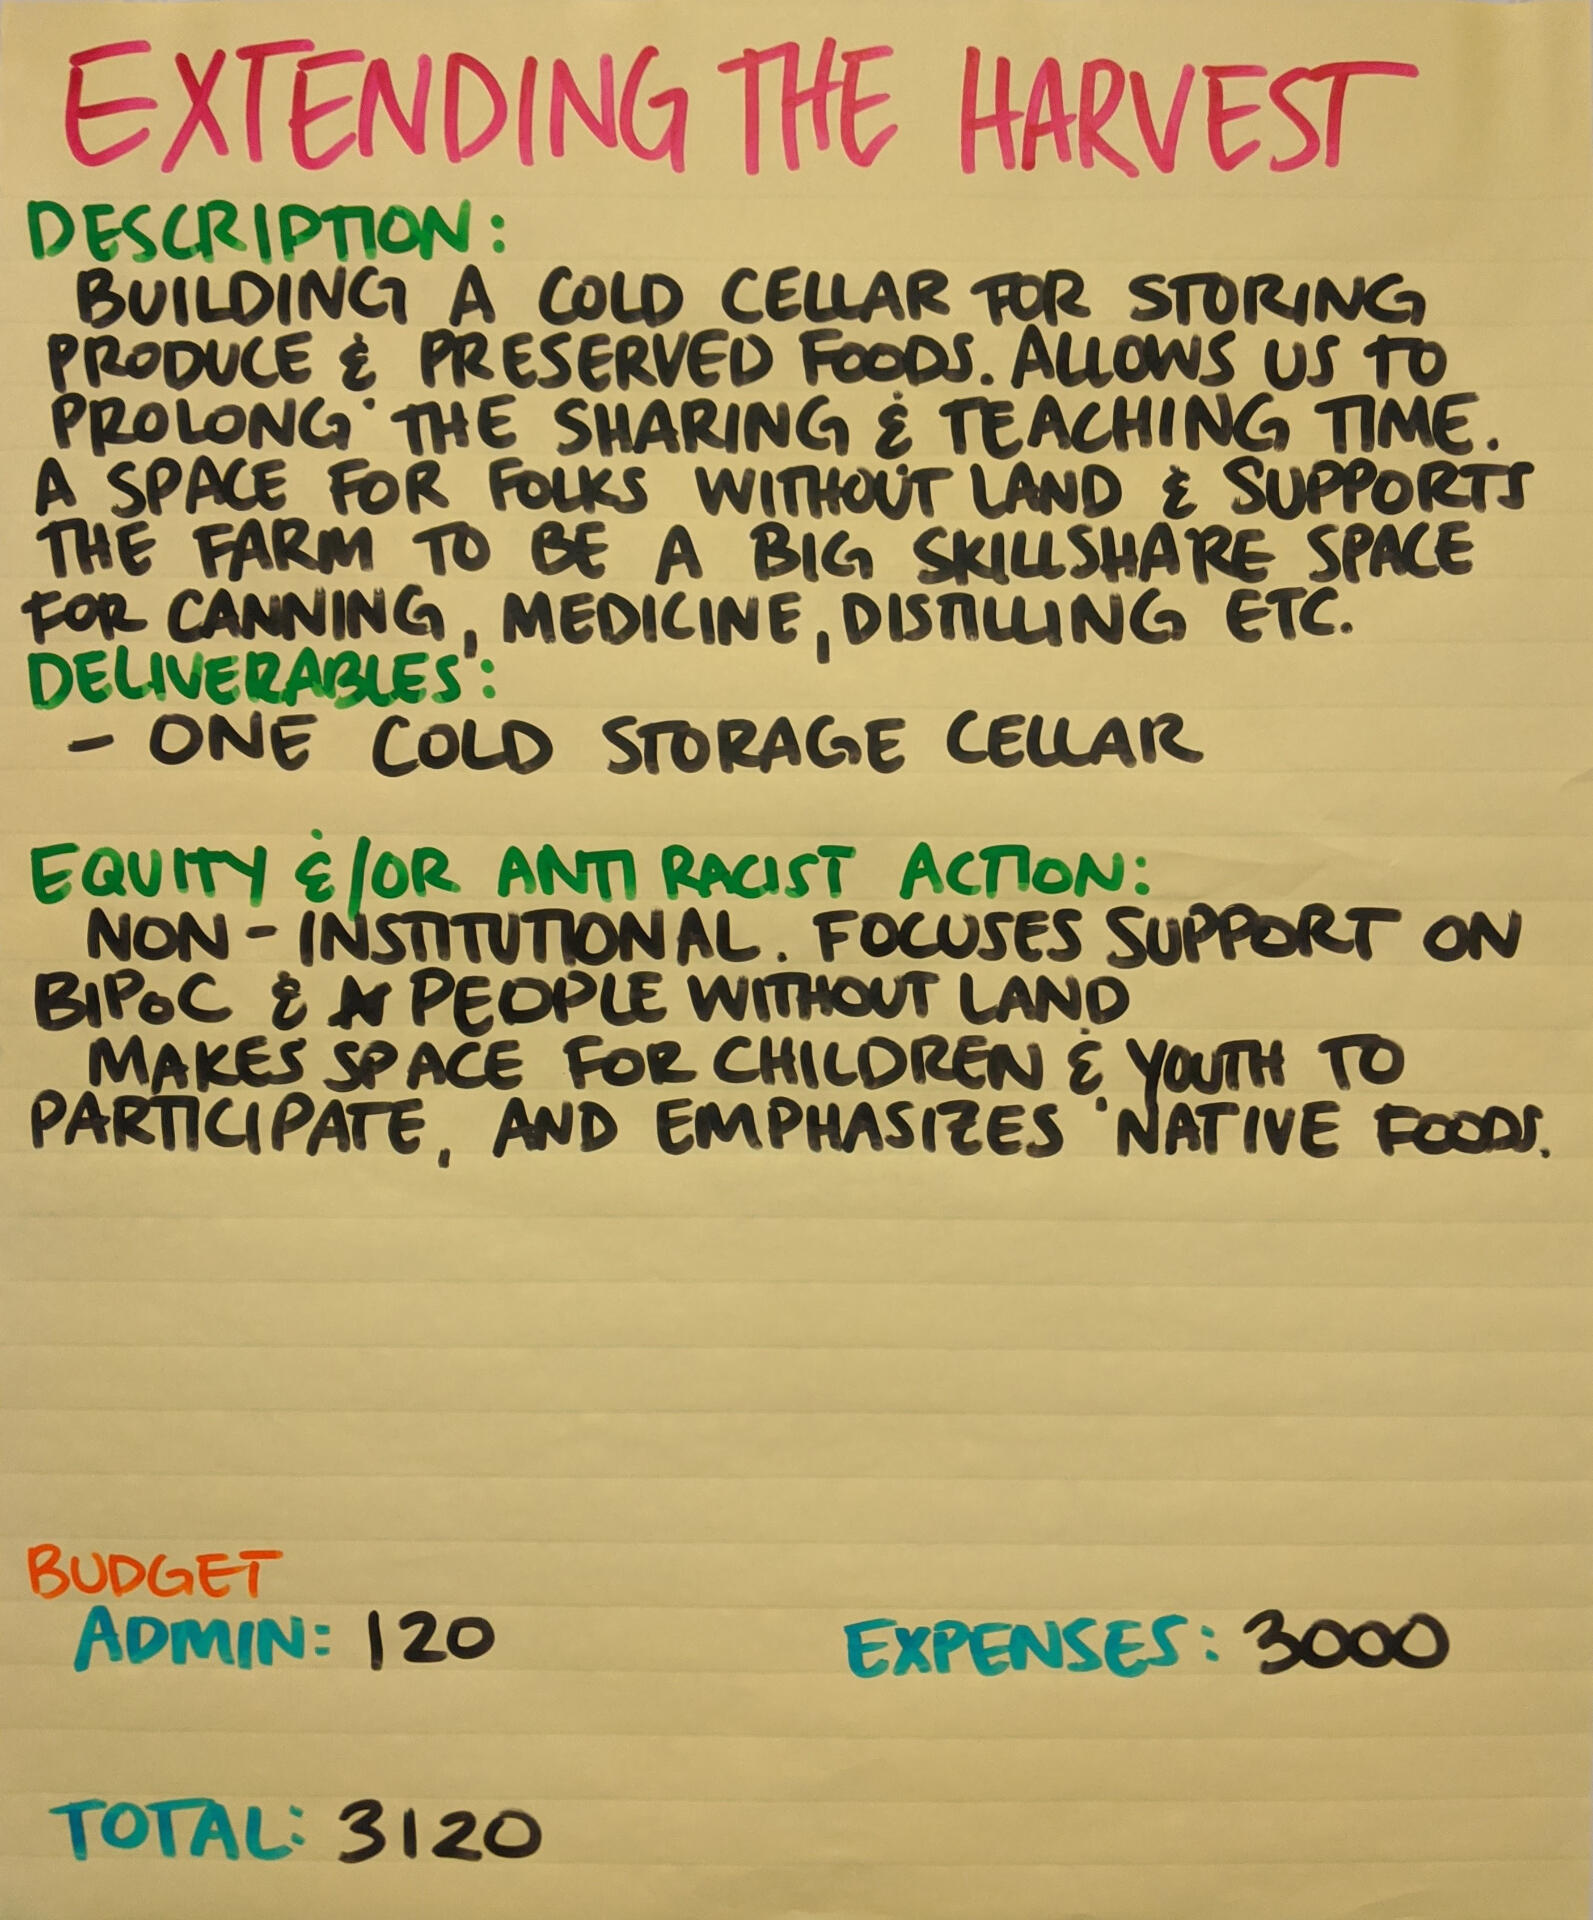 EXTENDING THE HARVEST
DESCRIPTION:
BUILDING A COLD CELLAR FOR STORING
PRODUCE & PRESERVED FOODS. ALLOWS US TO
PROLONG THE SHARING & TEACHING TIME.
A SPACE FOR FOLKS WITHOUT LAND & SUPPORTS
THE FARM TO BE A BIG SKILLSHARE SPACE
FOR CANNING, MEDICINE, DISTILLING ETC.
DELIVERABLES:
- ONE COLD STORAGE CELLAR
EQUITY &/OR ANTI RACIST ACTION:
NON-INSTITUTIONAL. FOCUSES SUPPORT ON
BIPOC & PEOPLE WITHOUT LAND
MAKES SPACE FOR CHILDREN & YOUTH TO
PARTICIPATE, AND EMPHASIZES NATIVE FOODS.
BUDGET
ADMIN: 120 EXPENSES: 3000
TOTAL: 3120